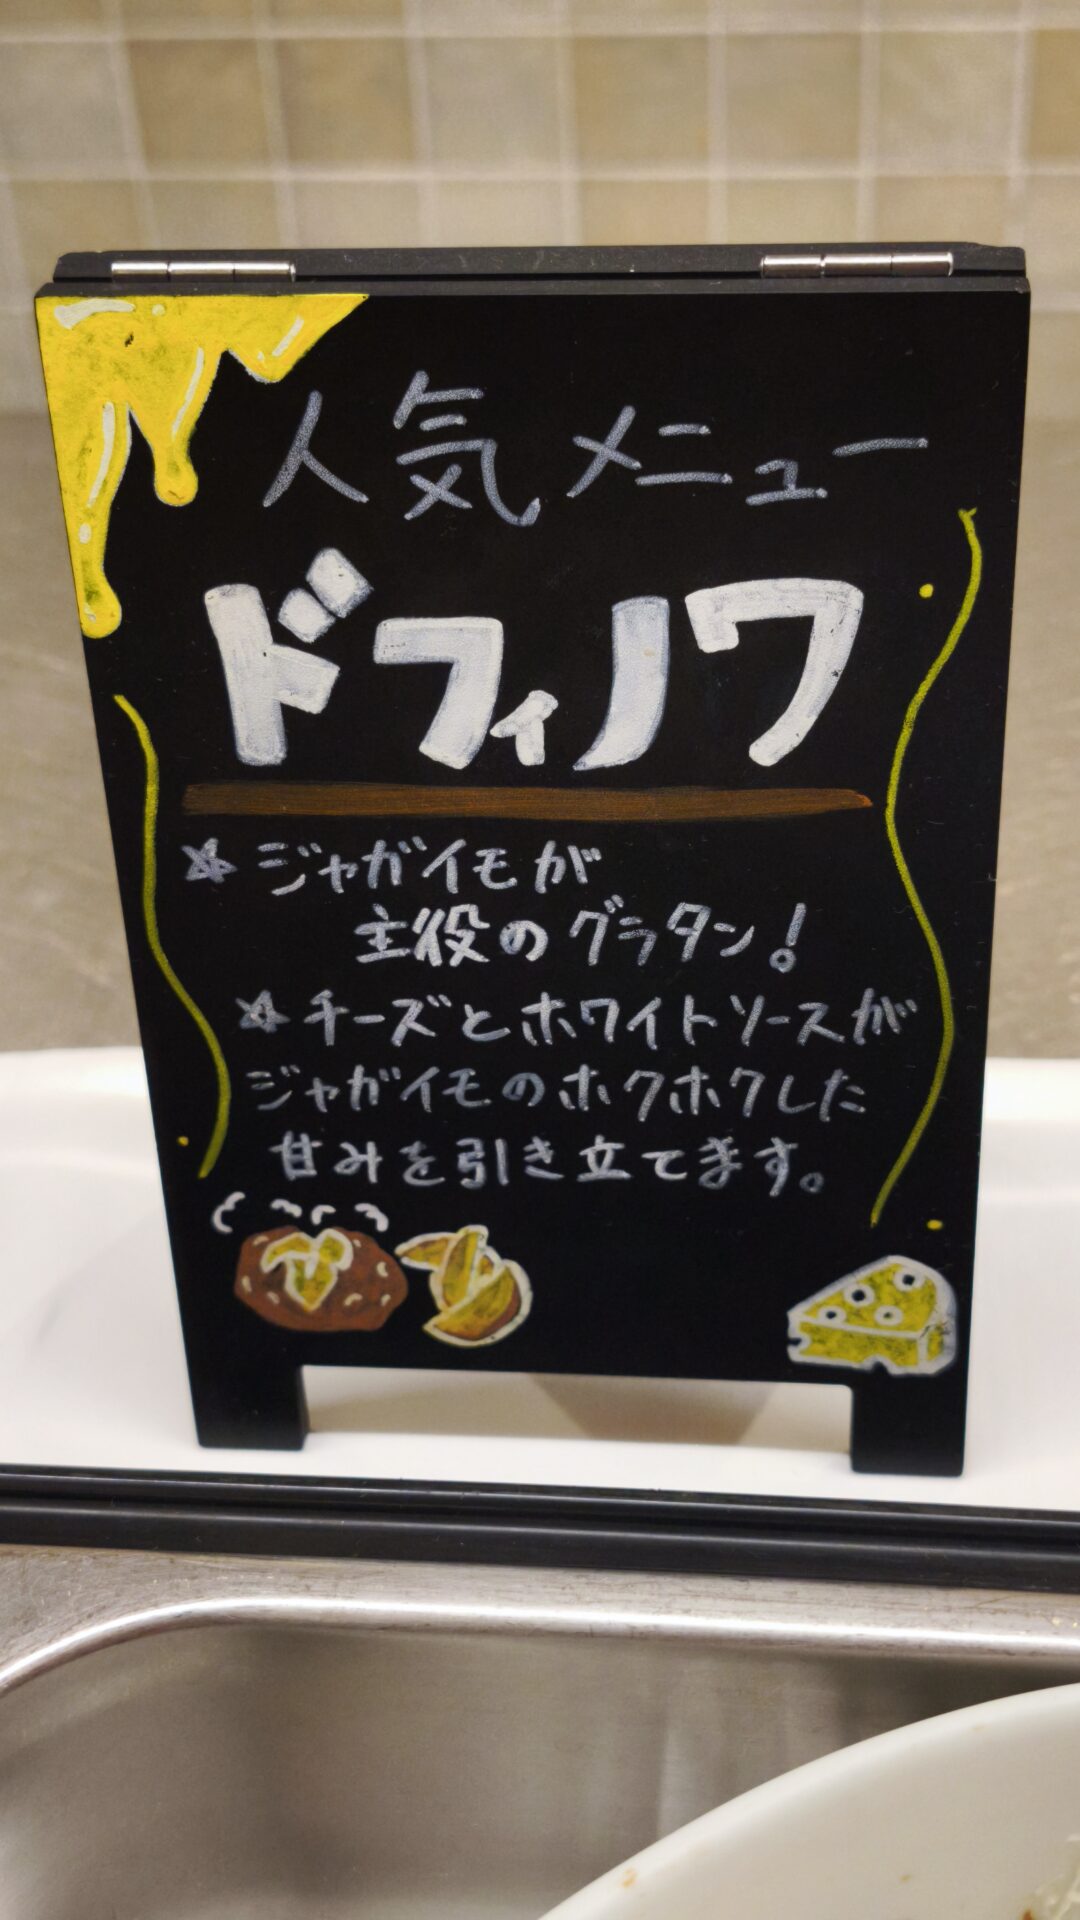 人気メニュー
ドフィノワ
☆ジャガイモが
主役のグラタン!
☆チーズとホワイトソースが
ジャガイモのホクホクした
甘みを引き立てます。